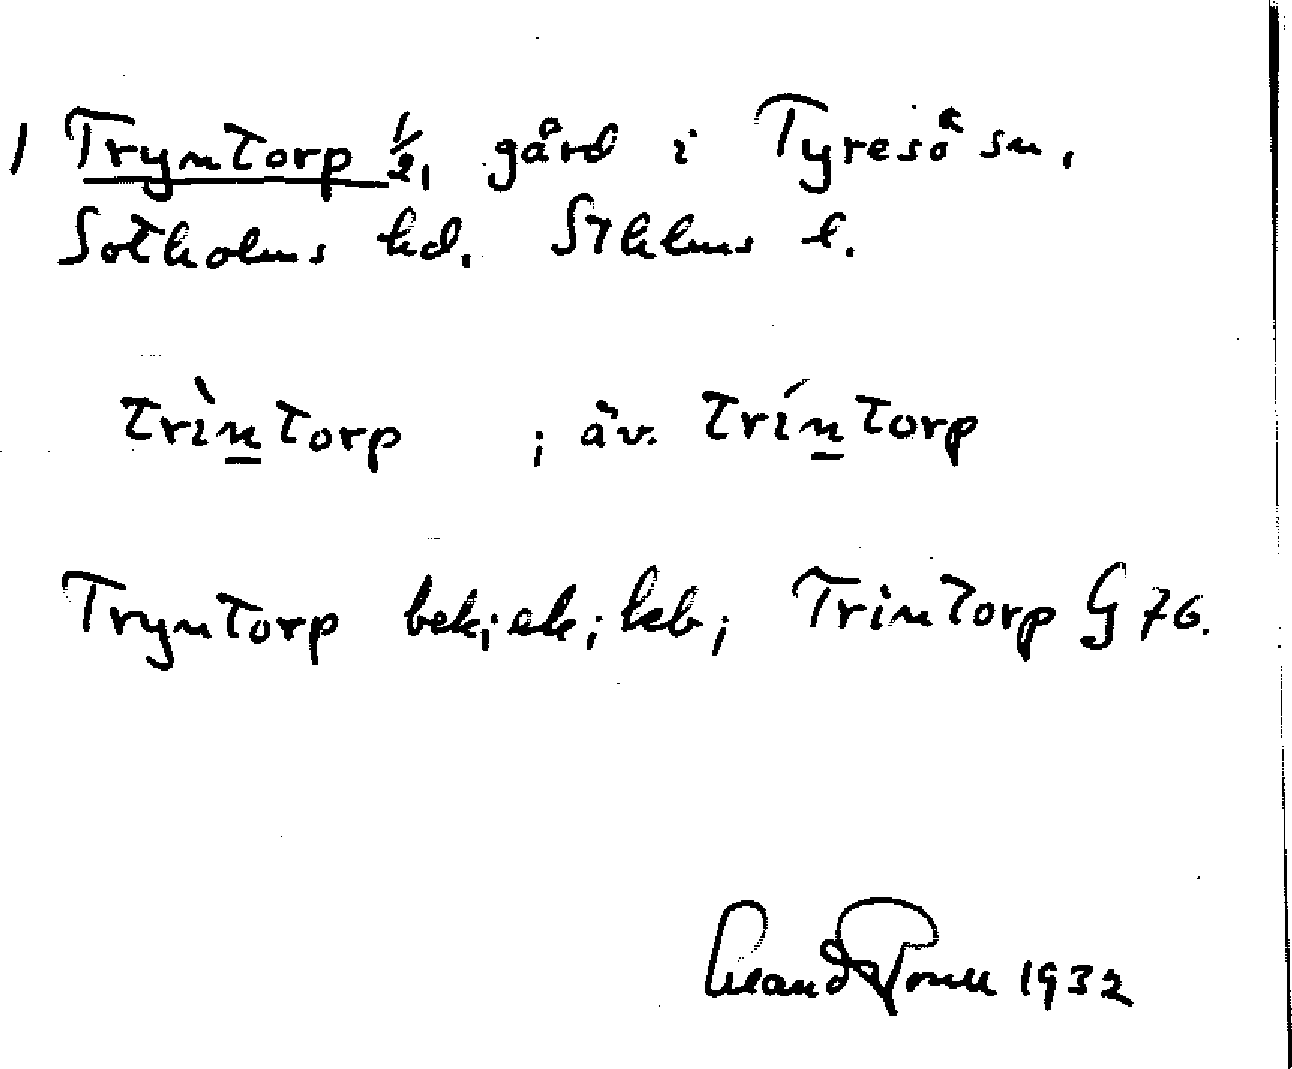 1 Tryntorp 1/2, gård i Tyresö sn,
Sotholms hd. Sthlms l.
trìntorp ; äv. tríntorp
Tryntorp bek; ek; kb; Trintorp G 76.
1932